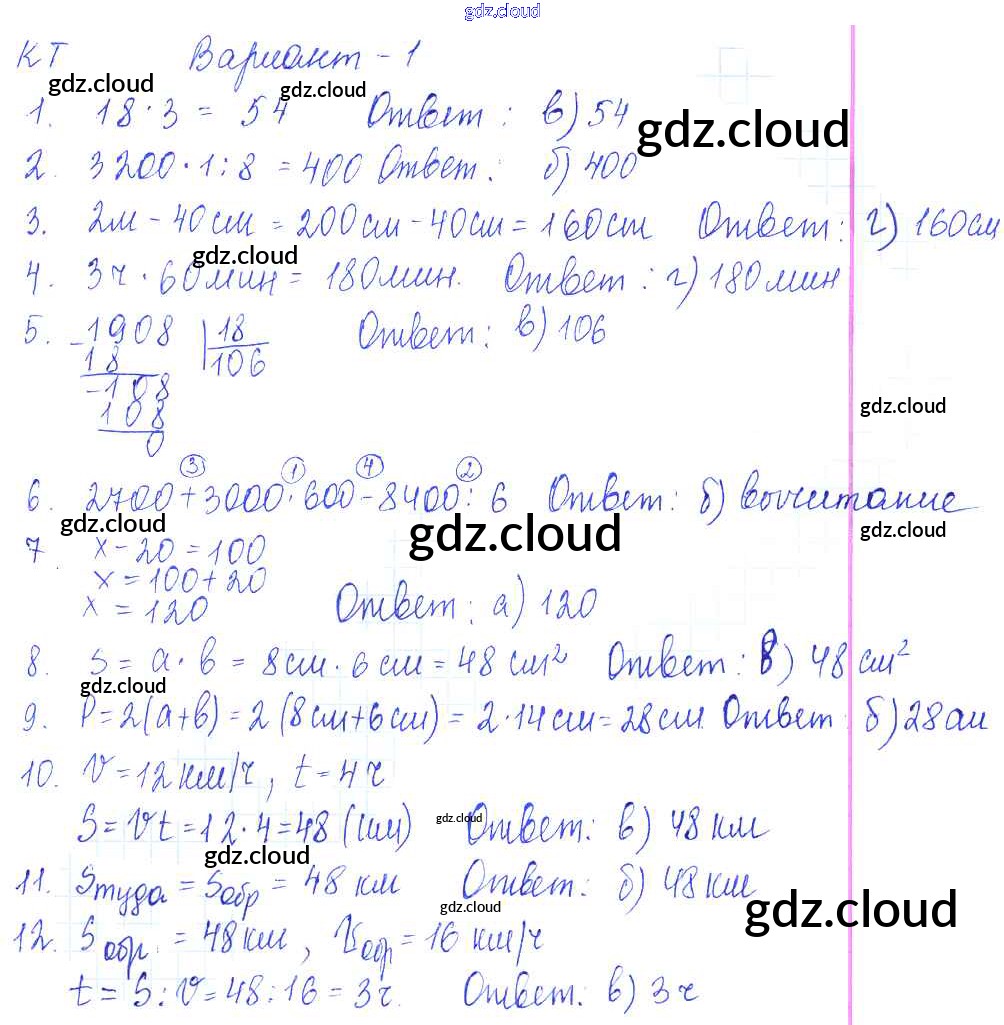 gdz.cloud
КТ Вариант - 1
gdz.cloud gdz.cloud
1. 18 · 3 = 54 Ответ : в) 54
gdz.cloud
2. 3200 · 1 : 8 = 400 Ответ : б) 400
3. 2м - 40см = 200см - 40см = 160см Ответ : г) 160см
gdz.cloud
4. 3ч · 60мин = 180мин. Ответ : г) 180мин
5. - 1908 | 18 Ответ : в) 106
18 106
gdz.cloud
- 108
108
0
gdz.cloud
3 1 4 2
6. 2700 + 3000 · 600 - 8400 : 6 Ответ : б) вычитание
gdz.cloud gdz.cloud gdz.cloud
7 x - 20 = 100
x = 100 + 20
x = 120 Ответ : а) 120
8. S = a · b = 8см · 6см = 48 см² Ответ : в) 48 см²
gdz.cloud
9. P = 2(a+b) = 2(8см+6см) = 2 · 14см = 28см. Ответ : б) 28см
10. v = 12 км/ч, t = 4ч
S = vt = 12 · 4 = 48 (км) Ответ : в) 48 км
gdz.cloud gdz.cloud
11. Sтуда = Sобр = 48 км Ответ : б) 48 км
gdz.cloud gdz.cloud
12. Sобр. = 48км, vобр = 16 км/ч
t = S : v = 48 : 16 = 3ч. Ответ : в) 3ч